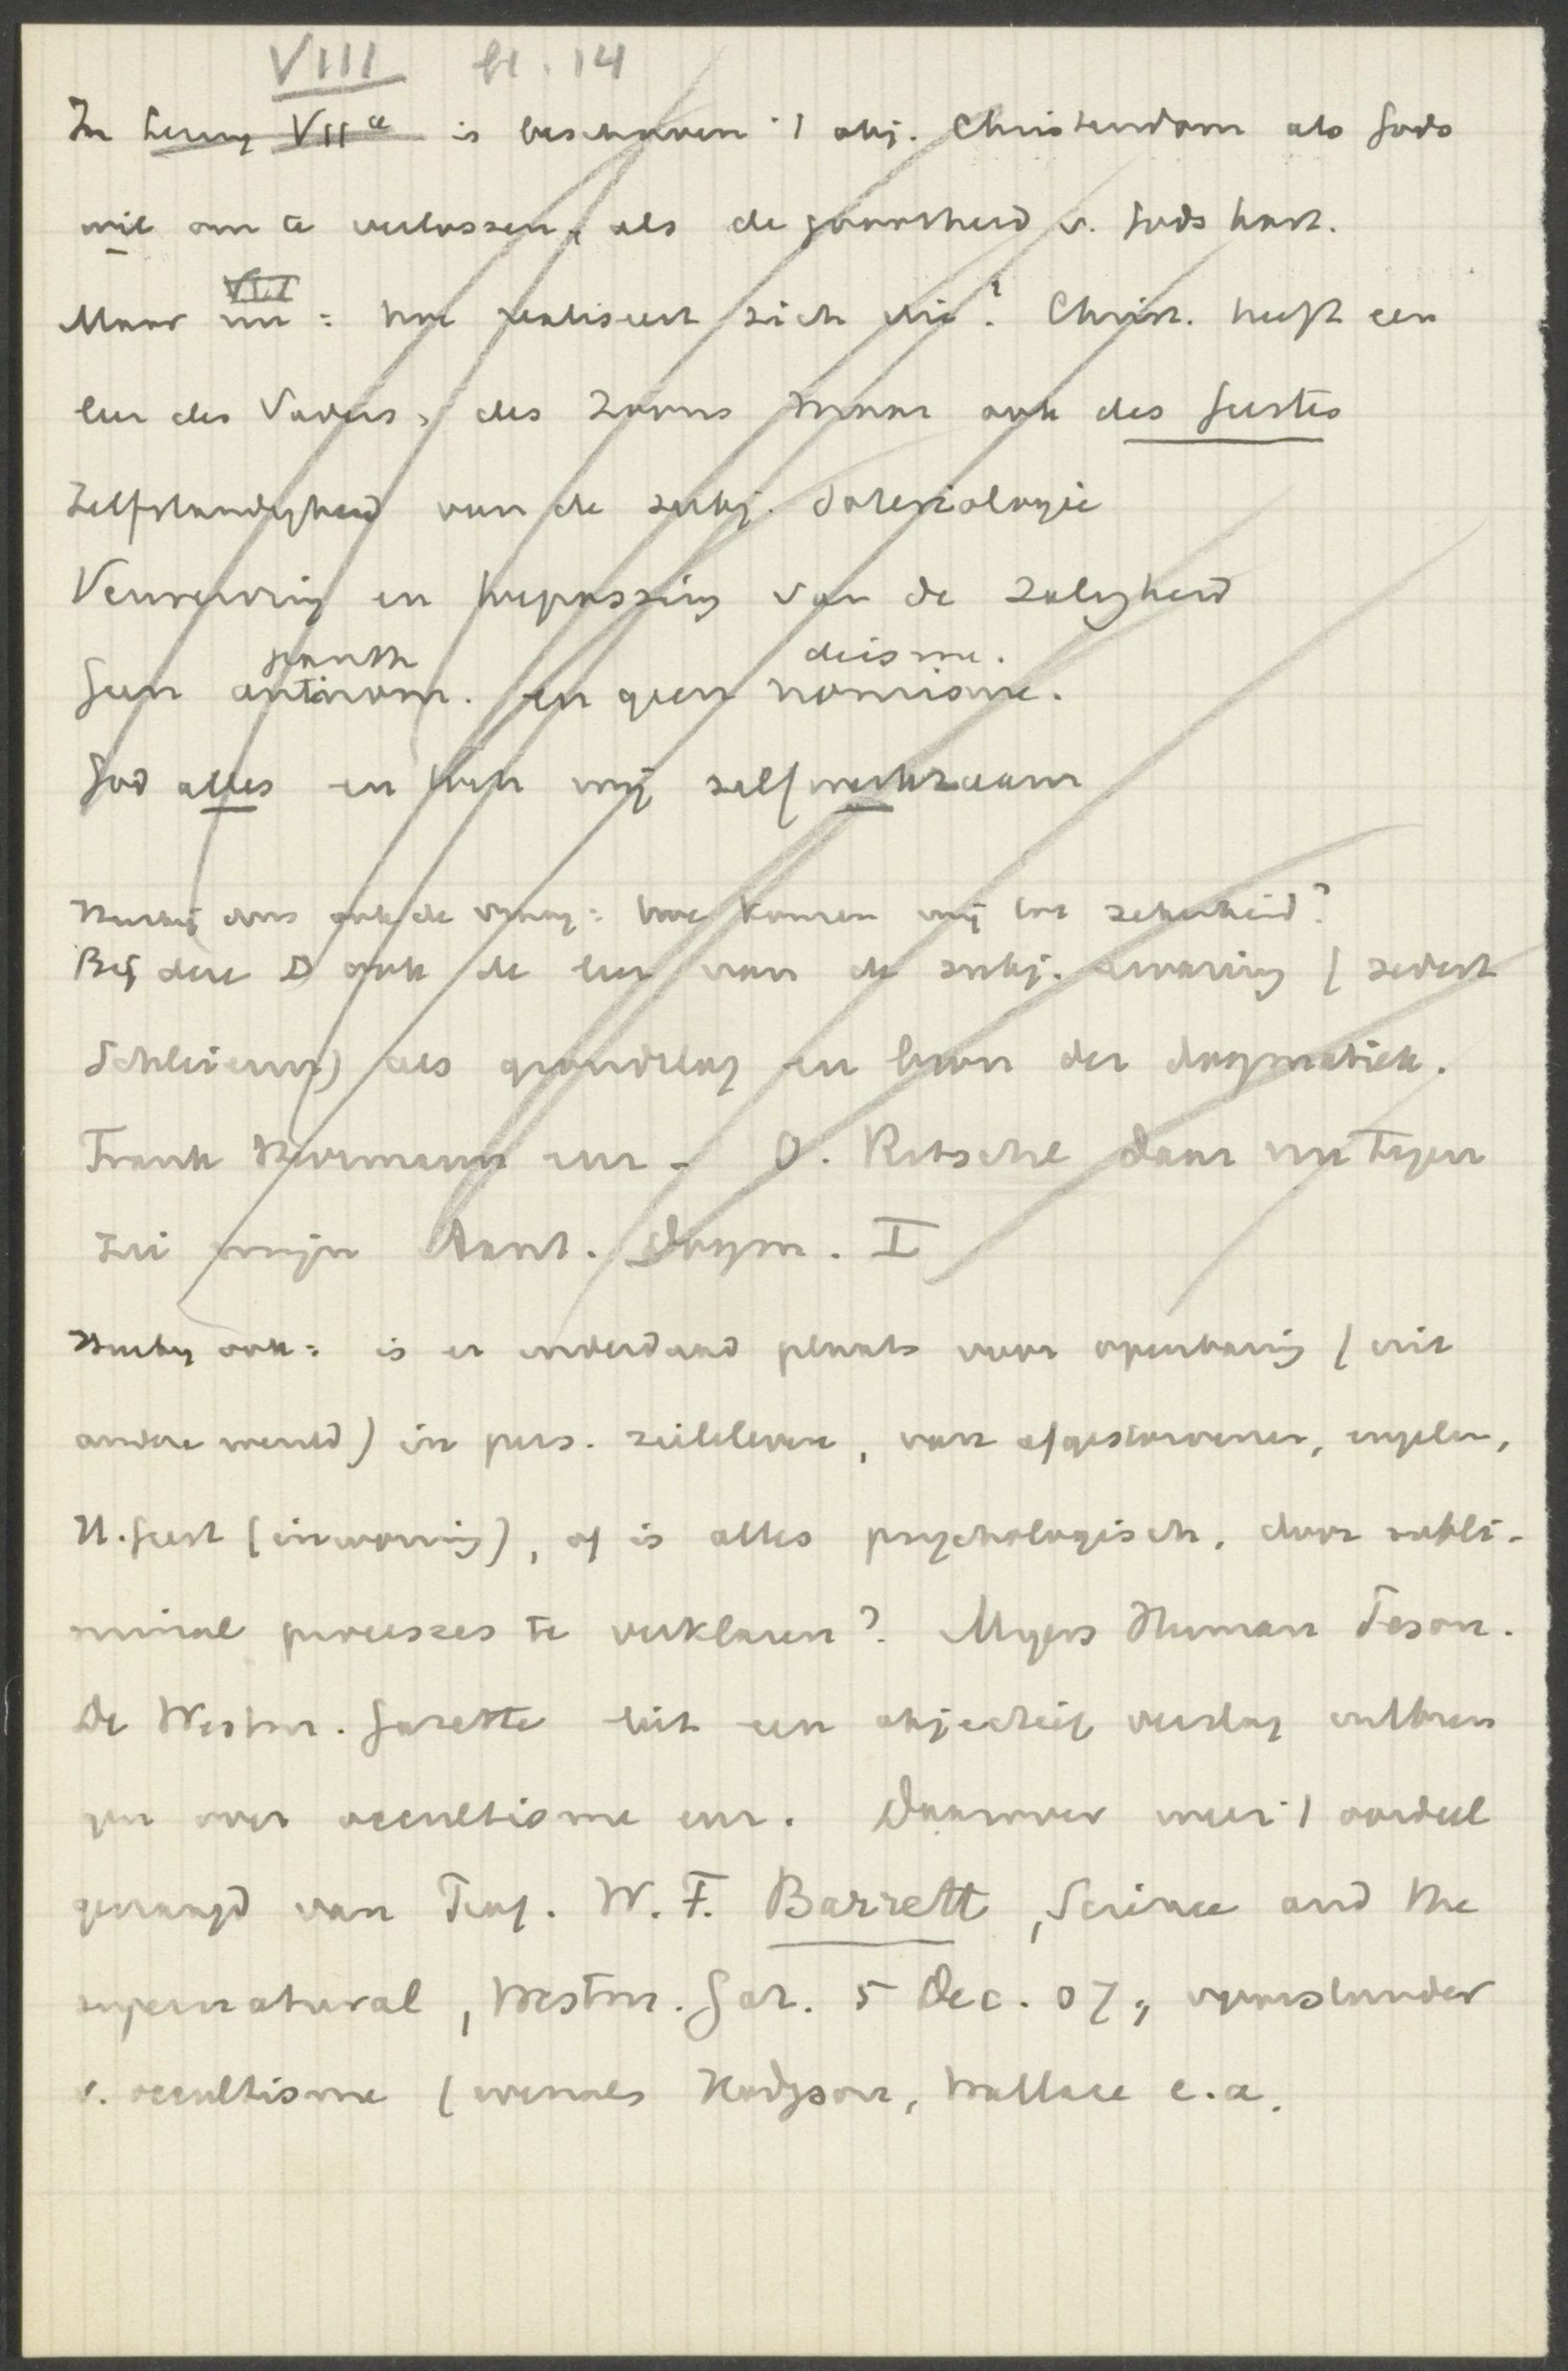 VIII bl. 14
In Lezing VIIa is beschreven 't obj. Christendom als Gods
wil om te verlossen, als de gezindheid v. Gods hart.
VIII
Maar nu: hoe realiseert zich die? Christ. heeft een
leer des Vaders, des Zoons maar ook des Geestes
Zelfstandigheid van de subj. Soteriologie
Verwerving en toepassing van de zaligheid
panth deisme.
Geen antinom. en geen nomisme.
God alles en toch wij zelf werkzaam
Hierbij dus ook de vraag: hoe komen wij tot zekerheid?
Bij deze D ook de leer van de subj. ervaring (sedert
Schleierm.) als grondslag en bron der dogmatiek.
Frank Herrmann enz - O. Ritschl daar nu tegen
zie mijn Aant. Dogm. I
Hierby ook: is er inderdaad plaats voor openbaring (uit
andere wereld) in pers. zieleleven, van afgestorvenen, engelen,
H. Geest (inwoning), of is alles psychologisch, door subli-
minal processes te verklaren? Myers Human Person.
De Westm. Gazette liet een objectief verslag uitbren
gen over occultisme enz. Daarover weer 't oordeel
gevraagd van Prof. W. F. Barrett, Science and the
supernatural, Westm. Gaz. 5 Dec. 07, voorstander
v. occultisme (evenals Hodgson, Wallace e.a.